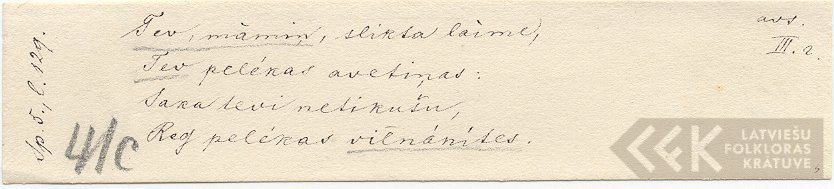 Tev, māmiņ, slikta laime,
Tev pelēkas avetiņas:
Saka tevi netikušu,
Reg pelēkas vilnānītes.
avs.
III. r.
Sp. 5, l. 129.
41c
LATVIEŠU
FOLKLORAS
KRĀTUVE